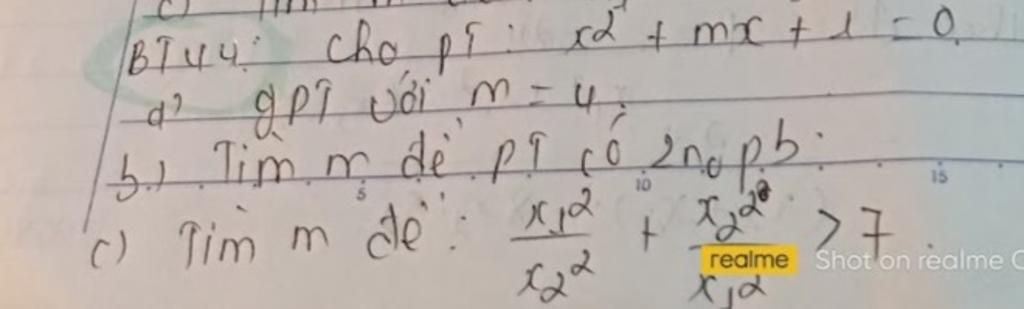 BT44: Cho pT: x² + mx + 1 = 0
a) gpT với m = 4.
b.) Tìm m để pT có 2n₀ pb.
5 10 15
c) Tìm m để: x₁²/x₂² + x₂²/x₁² > 7.
realme Shot on realme C